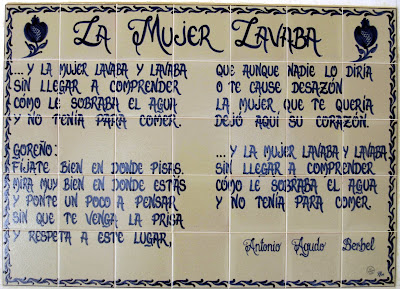 La Mujer Lavaba
...Y LA MUJER LAVABA Y LAVABA
SIN LLEGAR A COMPRENDER
CÓMO LE SOBRABA EL AGUA
Y NO TENÍA PARA COMER.
GOREÑO:
FÍJATE BIEN EN DONDE PISAS.
MIRA MUY BIEN EN DONDE ESTÁS
Y PONTE UN POCO A PENSAR
SIN QUE TE VENGA LA PRISA
Y RESPETA A ESTE LUGAR,
QUE AUNQUE NADIE LO DIRÍA
O TE CAUSE DESAZÓN
LA MUJER QUE TE QUERÍA
DEJÓ AQUÍ SU CORAZÓN.
...Y LA MUJER LAVABA Y LAVABA
SIN LLEGAR A COMPRENDER
CÓMO LE SOBRABA EL AGUA
Y NO TENÍA PARA COMER.
Antonio Agudo Berbel